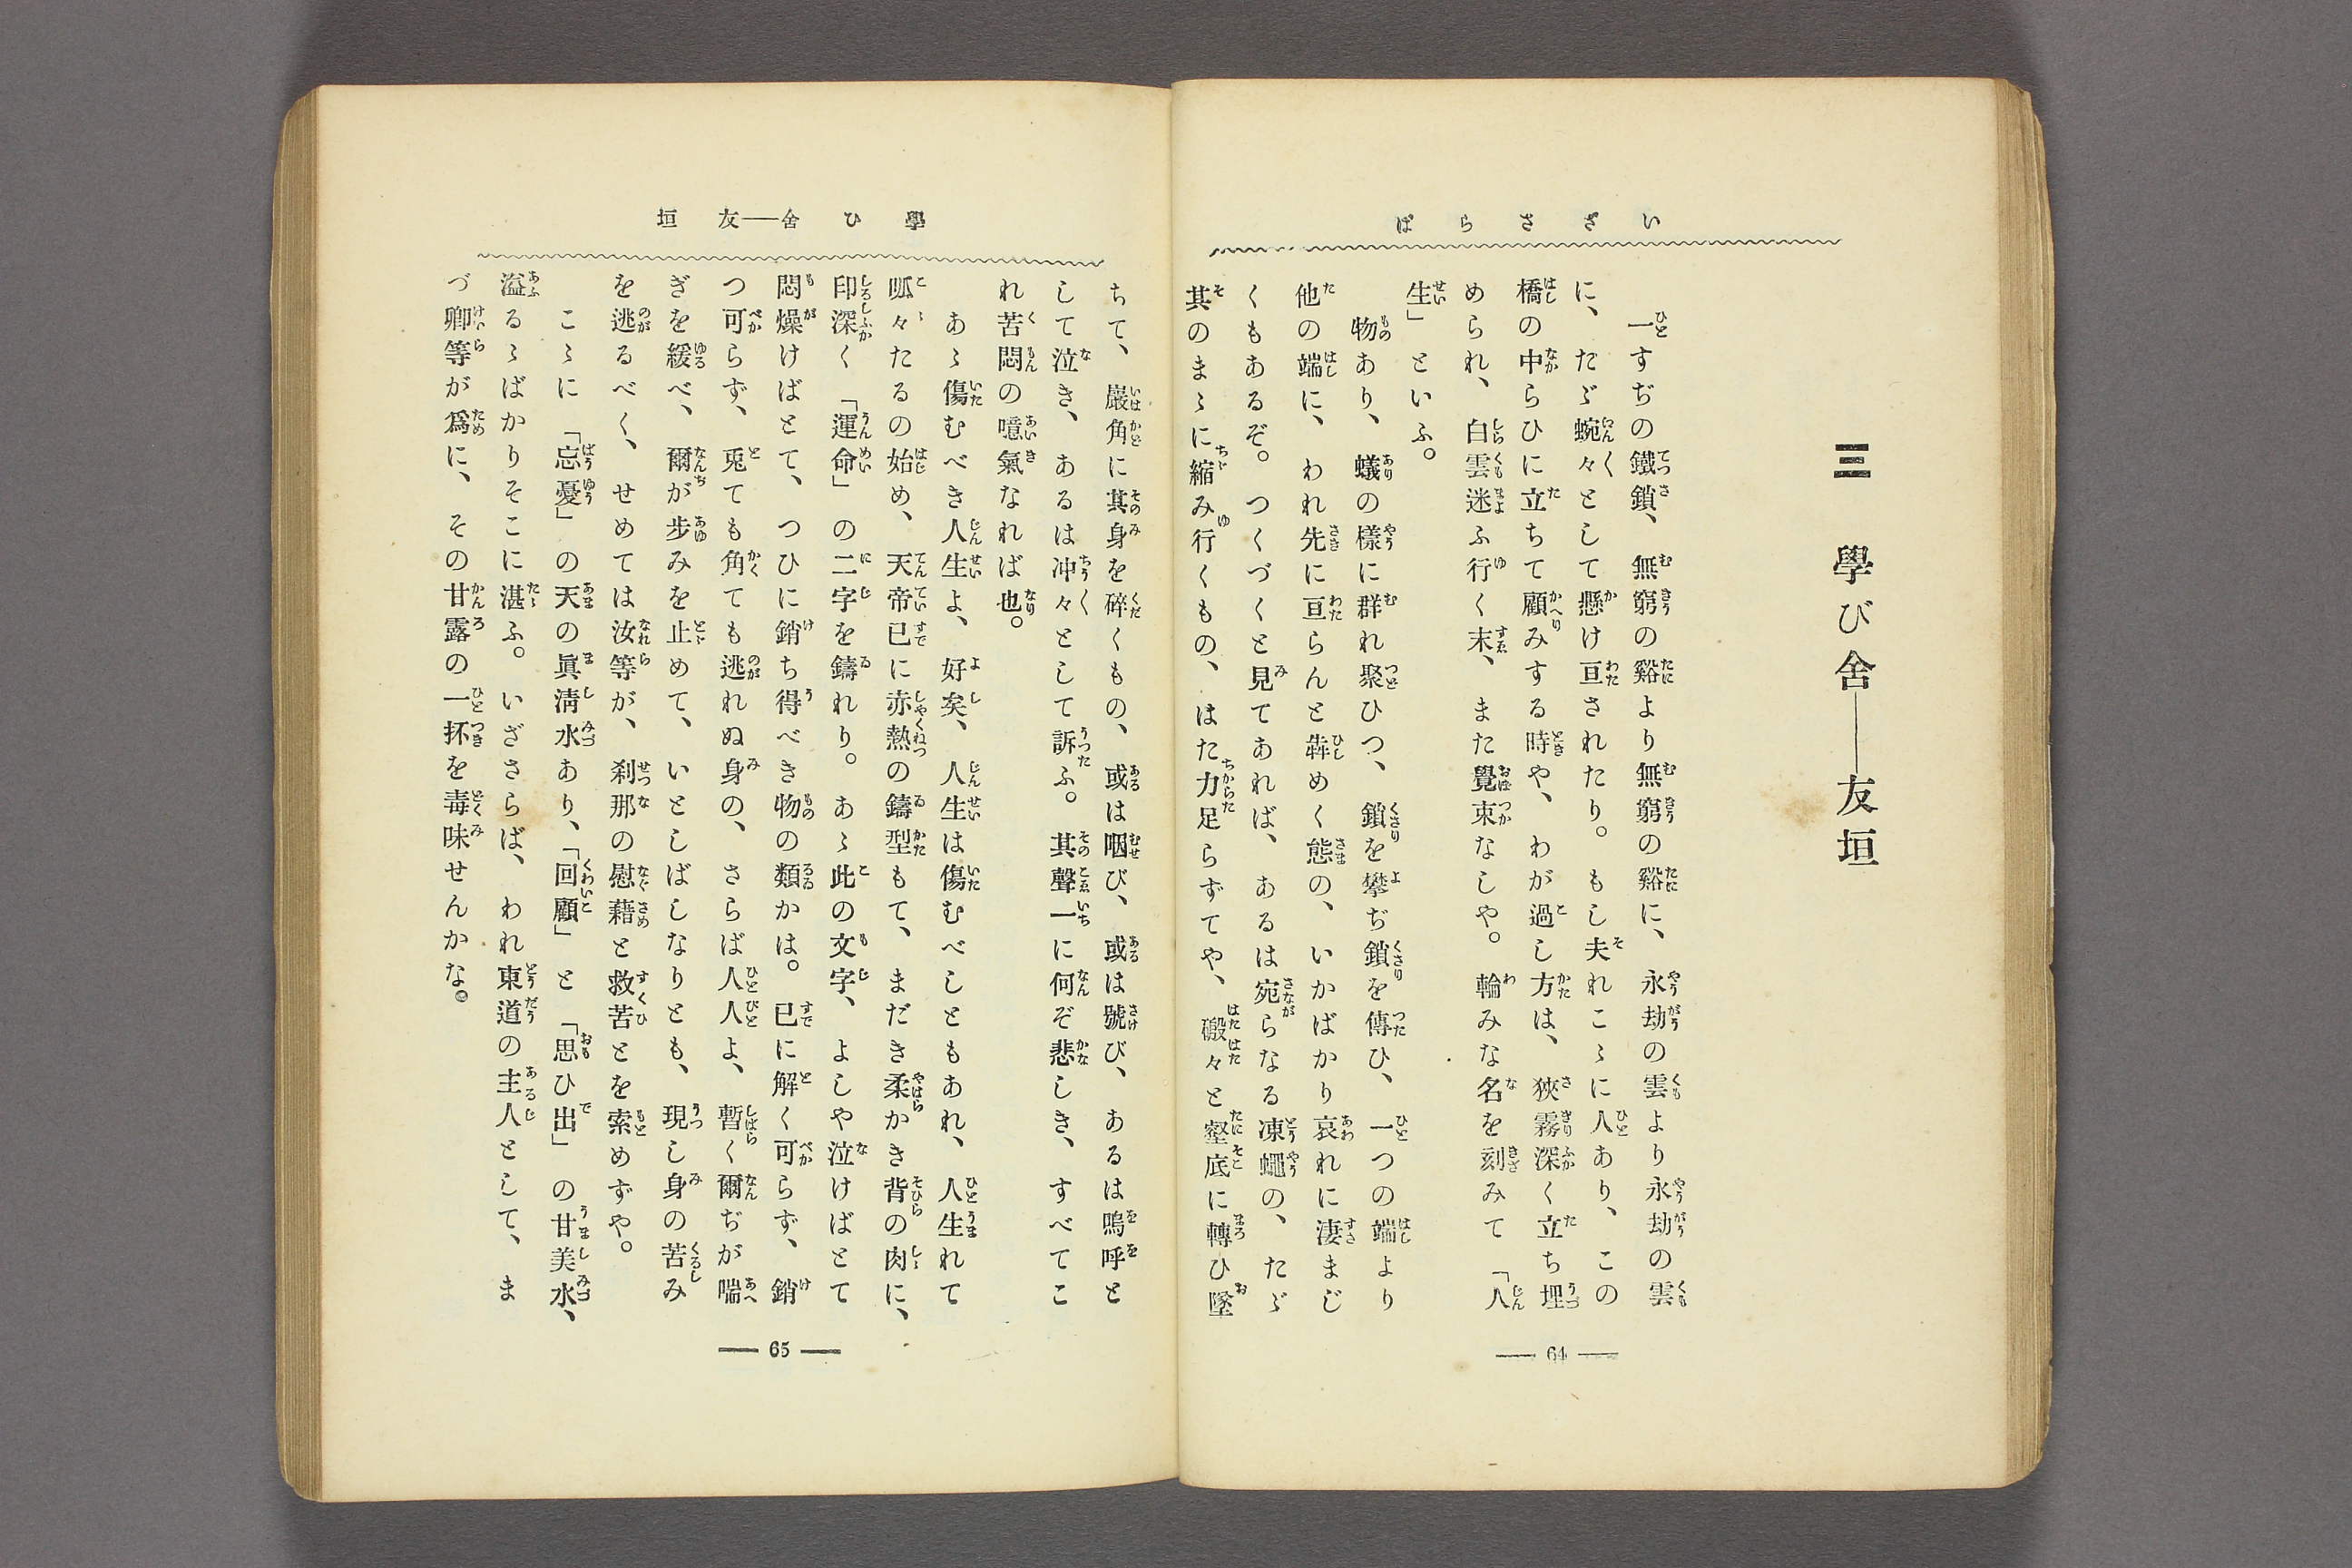 いざさらば
三 學び舍――友垣
一すぢの鐵鎖、無窮の谿より無窮の谿に、永劫の雲より永劫の雲
に、たゞ蜿々として懸け亘されたり。もし夫れこゝに人あり、この
橋の中らひに立ちて顧みする時や、わが過し方は、狹霧深く立ち埋
められ、白雲迷ふ行く末、また覺束なしや。輪みな名を刻みて「人
生」といふ。
物あり、蟻の樣に群れ聚ひつ、鎖を攀ぢ鎖を傳ひ、一つの端より
他の端に、われ先に亘らんと犇めく態の、いかばかり哀れに淒まじ
くもあるぞ。つくづくと見てあれば、あるは宛らなる凍蠅の、たゞ
其のまゝに縮み行くもの、はた力足らずてや、礮々と壑底に轉ひ墜
― 64 ―
學ひ舍――友垣
ちて、巖角に其身を碎くもの、或は咽び、或は號び、あるは嗚呼と
して泣き、あるは冲々として訴ふ。其聲一に何ぞ悲しき、すべてこ
れ苦悶の噫氣なれば也。
あゝ傷むべき人生よ、好矣、人生は傷むべしともあれ、人生れて
呱々たるの始め、天帝已に赤熱の鑄型もて、まだき柔かき背の肉に、
印深く「運命」の二字を鑄れり。あゝ此の文字、よしや泣けばとて
悶燥けばとて、つひに銷ち得べき物の類かは。已に解く可らず、銷
つ可らず、兎ても角ても逃れぬ身の、さらば人人よ、暫く爾ぢが喘
ぎを緩べ、爾が步みを止めて、いとしばしなりとも、現し身の苦み
を逃るべく、せめては汝等が、刹那の慰藉と救苦とを索めずや。
こゝに「忘憂」の天の眞淸水あり、「回顧」と「思ひ出」の甘美水、
溢るゝばかりそこに湛ふ。いざさらば、われ東道の主人として、ま
づ卿等が爲に、その甘露の一抔を毒味せんかな。
― 65 ―